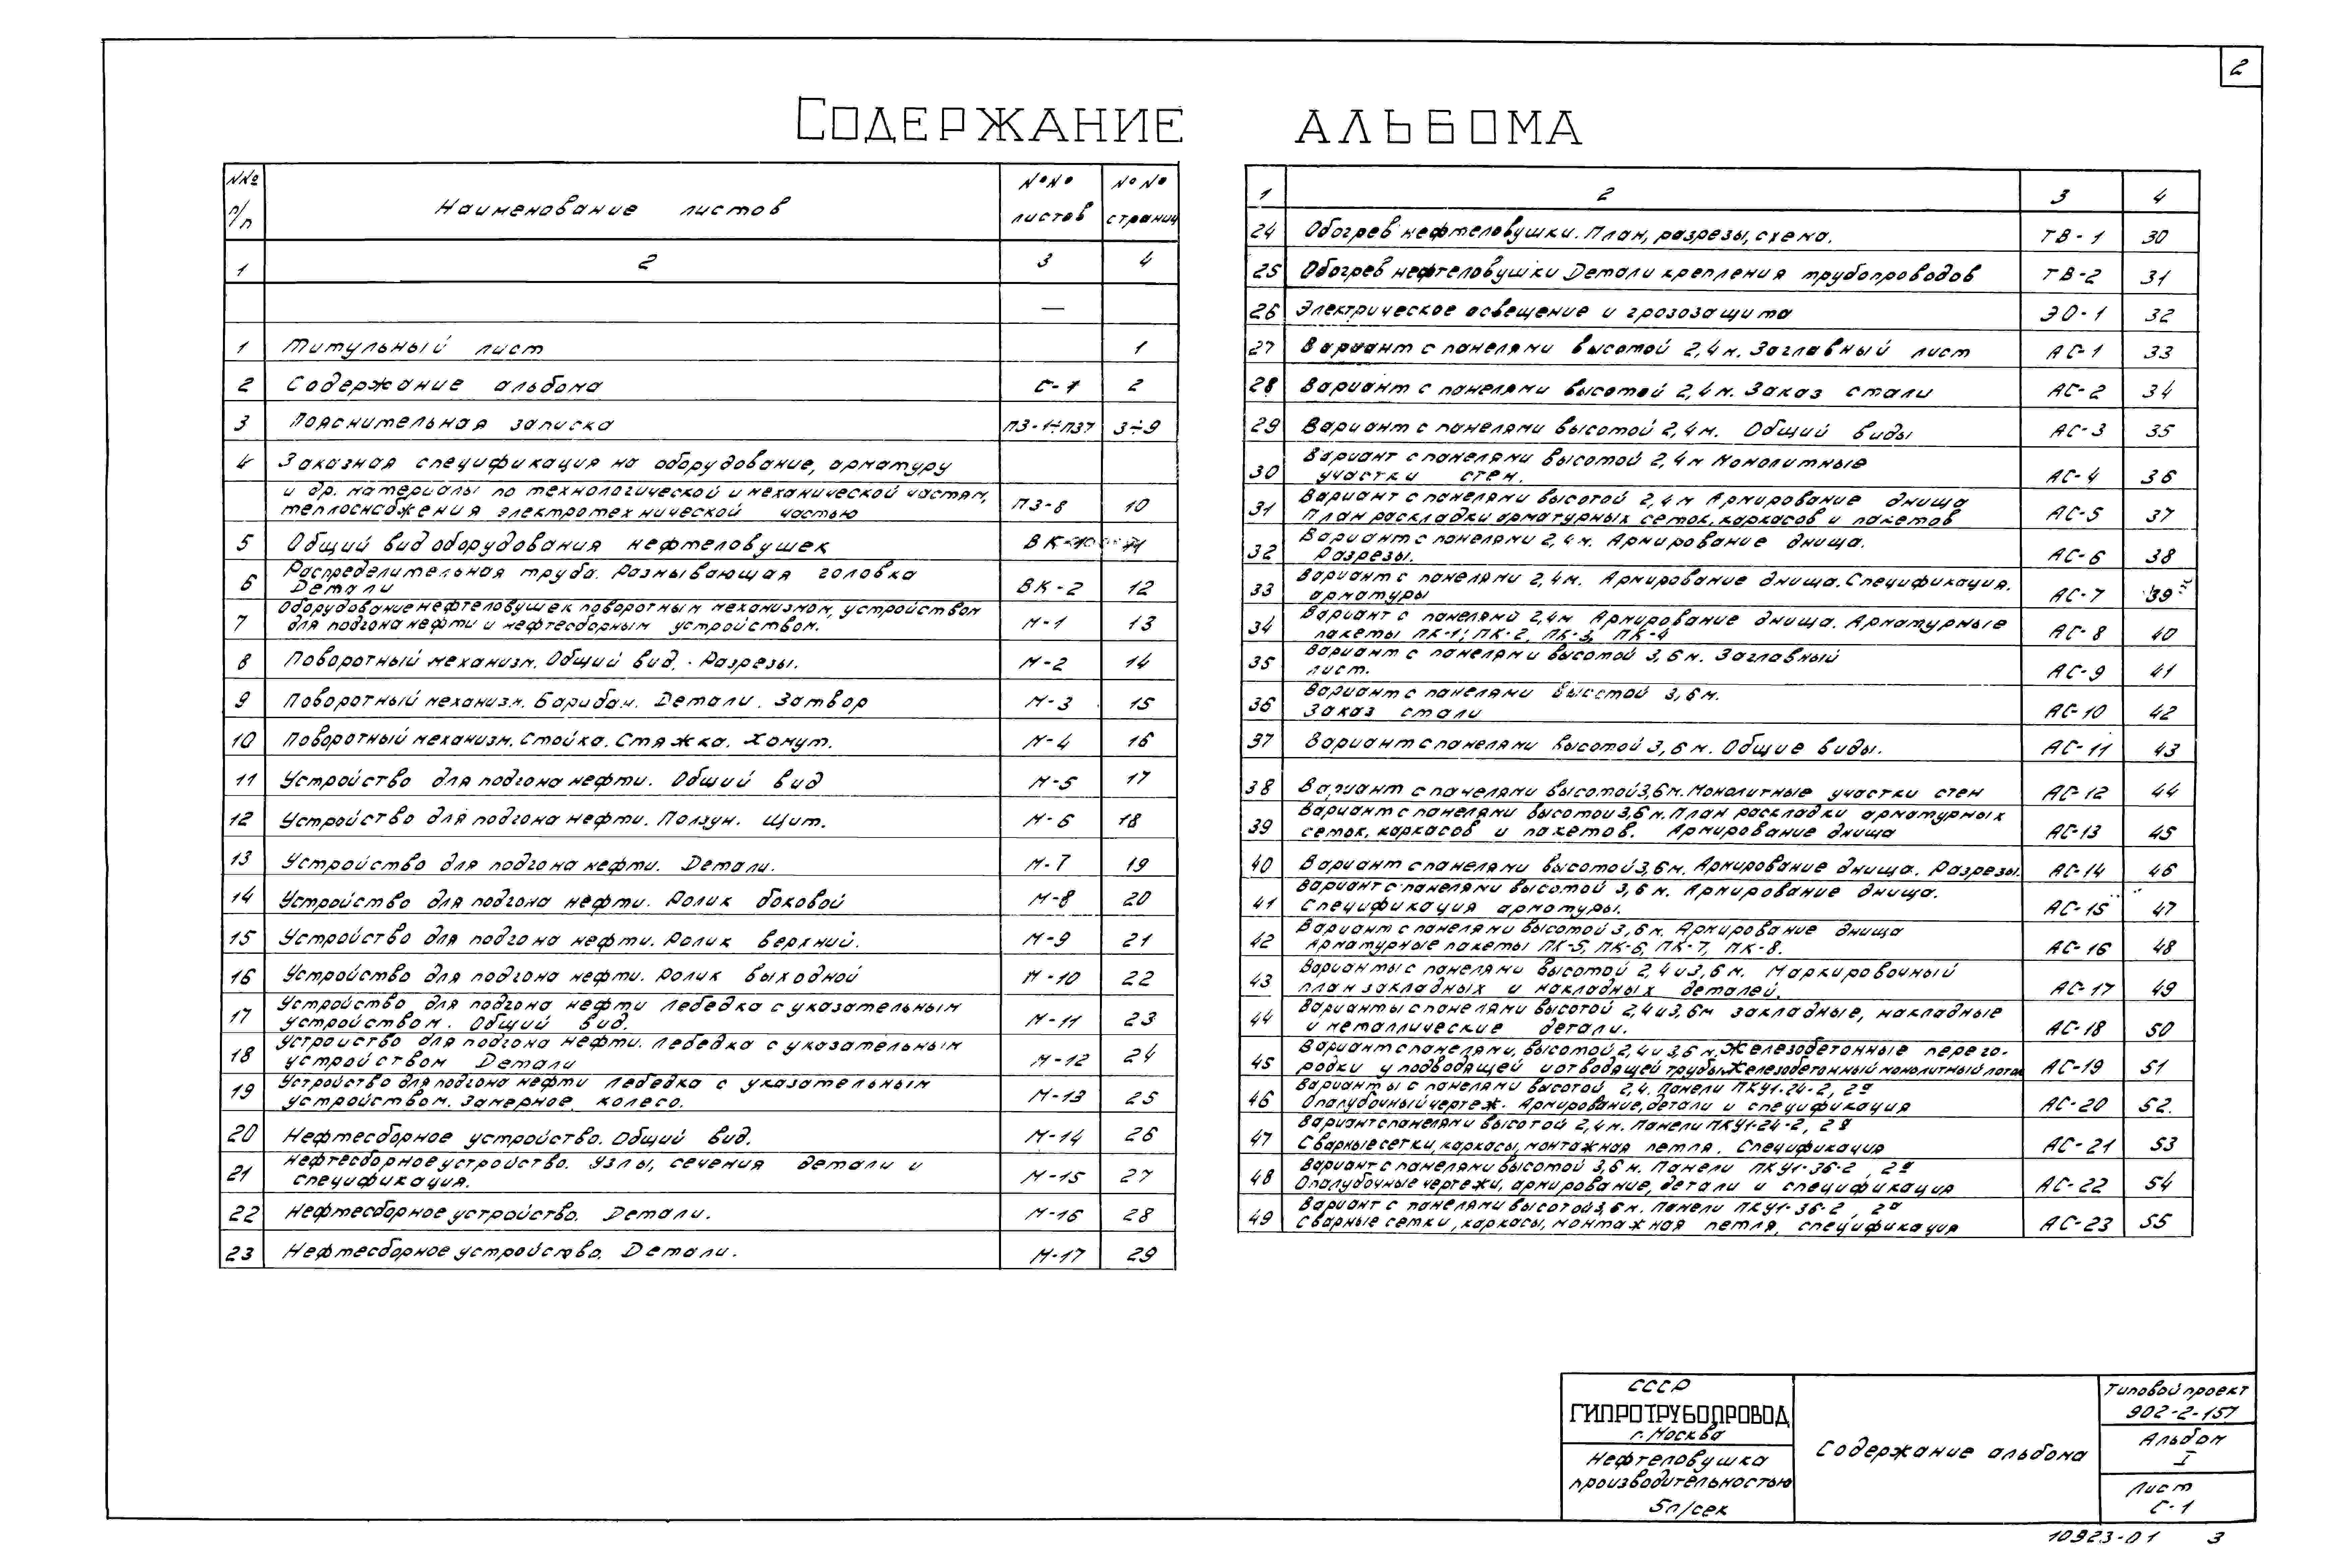 2
СОДЕРЖАНИЕ АЛЬБОМА
NNº п/п Наименование листов NºNº листов NºNº страниц
1 2 3 4
—
1 Титульный лист 1
2 Содержание альбома С-1 2
3 Пояснительная записка ПЗ-1÷ПЗ7 3÷9
4 Заказная спецификация на оборудование, арматуру
и др. материалы по технологической и механической частям,
теплоснабжения электротехнической частью ПЗ-8 10
5 Общий вид оборудования нефтеловушек ВК-1 11
6 Распределительная труба. Размывающая головка
Детали ВК-2 12
7 Оборудование нефтеловушек поворотным механизмом, устройством
для подгона нефти и нефтесборным устройством. М-1 13
8 Поворотный механизм. Общий вид. Разрезы. М-2 14
9 Поворотный механизм. Барабан. Детали. Затвор М-3 15
10 Поворотный механизм. Стойка. Стяжка. Хомут. М-4 16
11 Устройство для подгона нефти. Общий вид М-5 17
12 Устройство для подгона нефти. Ползун. Щит. М-6 18
13 Устройство для подгона нефти. Детали. М-7 19
14 Устройство для подгона нефти. Ролик боковой М-8 20
15 Устройство для подгона нефти. Ролик верхний. М-9 21
16 Устройство для подгона нефти. Ролик выходной М-10 22
17 Устройство для подгона нефти Лебедка с указательным
устройством. Общий вид. М-11 23
18 Устройство для подгона нефти. Лебедка с указательным
устройством Детали М-12 24
19 Устройство для подгона нефти Лебедка с указательным
устройством. Замерное колесо. М-13 25
20 Нефтесборное устройство. Общий вид. М-14 26
21 Нефтесборное устройство. Узлы, сечения детали и
спецификация. М-15 27
22 Нефтесборное устройство. Детали. М-16 28
23 Нефтесборное устройство. Детали. М-17 29
1 2 3 4
24 Обогрев нефтеловушки. План, разрезы, схема. ТВ-1 30
25 Обогрев нефтеловушки Детали крепления трубопроводов ТВ-2 31
26 Электрическое освещение и грозозащита ЭО-1 32
27 Вариант с панелями высотой 2,4 м. Заглавный лист АС-1 33
28 Вариант с панелями высотой 2,4 м. Заказ стали АС-2 34
29 Вариант с панелями высотой 2,4 м. Общий виды АС-3 35
30 Вариант с панелями высотой 2,4 м Монолитные
участки стен. АС-4 36
31 Вариант с панелями высотой 2,4 м Армирование днища
План раскладки арматурных сеток, каркасов и пакетов АС-5 37
32 Вариант с панелями 2,4 м. Армирование днища.
Разрезы. АС-6 38
33 Вариант с панелями 2,4 м. Армирование днища. Спецификация.
арматуры АС-7 39
34 Вариант с панелями 2,4 м Армирование днища. Арматурные
пакеты ПК-1; ПК-2, ПК-3, ПК-4 АС-8 40
35 Вариант с панелями высотой 3,6 м. Заглавный
лист. АС-9 41
36 Вариант с панелями высотой 3,6 м.
Заказ стали АС-10 42
37 Вариант с панелями высотой 3,6 м. Общие виды. АС-11 43
38 Вариант с панелями высотой 3,6 м. Монолитные участки стен АС-12 44
39 Вариант с панелями высотой 3,6 м. План раскладки арматурных
сеток, каркасов и пакетов. Армирование днища АС-13 45
40 Вариант с панелями высотой 3,6 м. Армирование днища. Разрезы. АС-14 46
41 Вариант с панелями высотой 3,6 м. Армирование днища.
Спецификация арматуры. АС-15 47
42 Вариант с панелями высотой 3,6 м. Армирование днища
Арматурные пакеты ПК-5, ПК-6, ПК-7, ПК-8. АС-16 48
43 Варианты с панелями высотой 2,4 и 3,6 м. Маркировочный
план закладных и накладных деталей. АС-17 49
44 Варианты с панелями высотой 2,4 и 3,6м закладные, накладные
и металлические детали. АС-18 50
45 Вариант с панелями, высотой 2,4 и 3,6 м. Железобетонные перего-
родки у подводящей и отводящей трубы. Железобетонный монолитный лоток АС-19 51
46 Варианты с панелями высотой 2,4. Панели ПКУ1-24-2, 2ª
Опалубочный чертеж. Армирование, детали и спецификация АС-20 52.
47 Вариант с панелями высотой 2,4 м. Панели ПКУ1-24-2, 2ª
Сварные сетки, каркасы, монтажная петля. Спецификация АС-21 53
48 Вариант с панелями высотой 3,6 м. Панели ПКУ1-36-2, 2ª
Опалубочные чертежи, армирование, детали и спецификация АС-22 54
49 Вариант с панелями высотой 3,6 м. Панели ПКУ1-36-2, 2ª
Сварные сетки, каркасы, монтажная петля, спецификация АС-23 55
СССР
ГИПРОТРУБОПРОВОД
г. Москва
Нефтеловушка
производительностью
5л/сек
Содержание альбома
Типовой проект
902-2-157
Альбом
I
Лист
С-1
10923-01 3